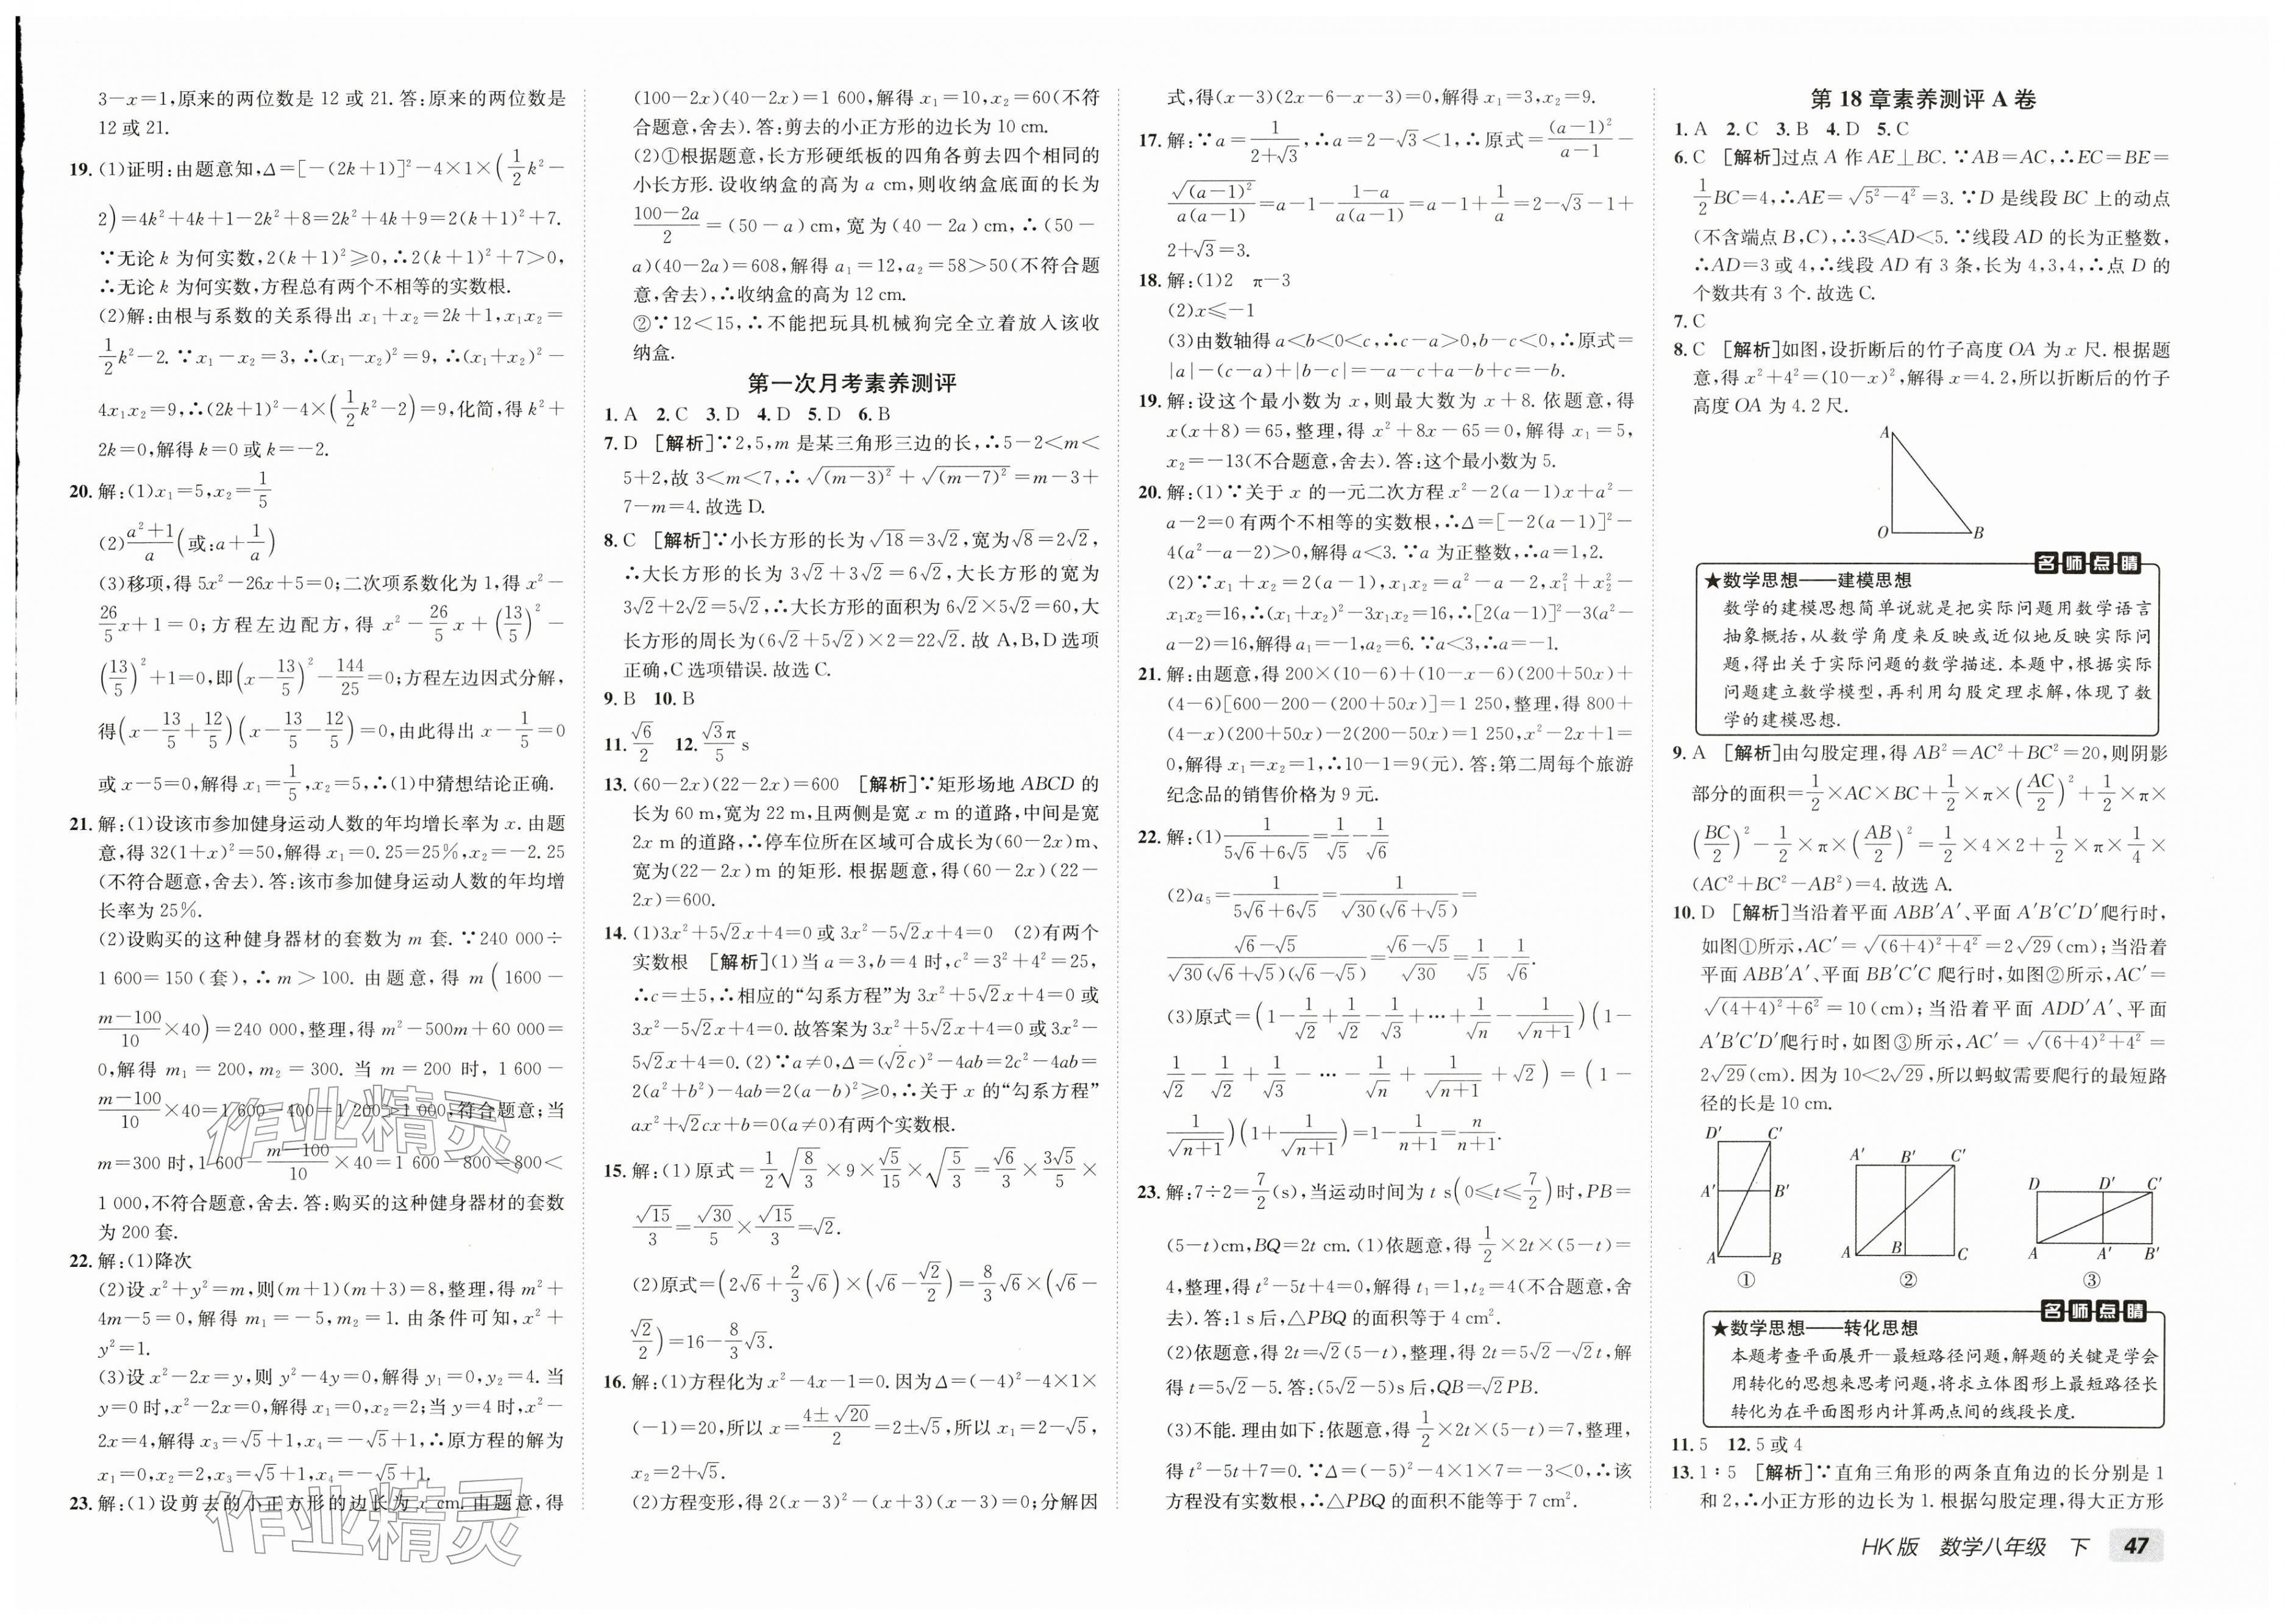 3－x＝1,原来的两位数是 12 或 21.答:原来的两位数是
12 或 21.
19. (1)证明:由题意知,Δ＝[－(2k＋1)]²－4×1×(1/2 k²－
2)＝4k²＋4k＋1－2k²＋8＝2k²＋4k＋9＝2(k＋1)²＋7.
∵无论 k 为何实数,2(k＋1)²≥0,∴2(k＋1)²＋7＞0,
∴无论 k 为何实数,方程总有两个不相等的实数根.
(2)解:由根与系数的关系得出 x₁＋x₂＝2k＋1,x₁x₂＝
1/2 k²－2. ∵x₁－x₂＝3,∴(x₁－x₂)²＝9,∴(x₁＋x₂)²－
4x₁x₂＝9,∴(2k＋1)²－4×(1/2 k²－2)＝9,化简,得 k²＋
2k＝0,解得 k＝0 或 k＝－2.
20. 解:(1)x₁＝5,x₂＝1/5
(2)(a²＋1)/a (或:a＋1/a)
(3)移项,得 5x²－26x＋5＝0;二次项系数化为 1,得 x²－
26/5 x＋1＝0;方程左边配方,得 x²－26/5 x＋(13/5)²－
(13/5)²＋1＝0,即(x－13/5)²－144/25＝0;方程左边因式分解,
得(x－13/5＋12/5)(x－13/5－12/5)＝0,由此得出 x－1/5＝0
或 x－5＝0,解得 x₁＝1/5,x₂＝5,∴(1)中猜想结论正确.
21. 解:(1)设该市参加健身运动人数的年均增长率为 x.由题
意,得 32(1＋x)²＝50,解得 x₁＝0.25＝25%,x₂＝－2.25
(不符合题意,舍去).答:该市参加健身运动人数的年均增
长率为 25%.
(2)设购买的这种健身器材的套数为 m 套. ∵240 000÷
1 600＝150(套),∴m＞100. 由题意,得 m(1600－
(m－100)/10×40)＝240 000,整理,得 m²－500m＋60 000＝
0,解得 m₁＝200,m₂＝300. 当 m＝200 时,1 600－
(m－100)/10×40＝1 600－400＝1 200＞1 000,符合题意;当
m＝300 时,1 600－(m－100)/10×40＝1 600－800＝800＜
1 000,不符合题意,舍去.答:购买的这种健身器材的套数
为 200 套.
22. 解:(1)降次
(2)设 x²＋y²＝m,则(m＋1)(m＋3)＝8,整理,得 m²＋
4m－5＝0,解得 m₁＝－5,m₂＝1.由条件可知,x²＋
y²＝1.
(3)设 x²－2x＝y,则 y²－4y＝0,解得 y₁＝0,y₂＝4. 当
y＝0 时,x²－2x＝0,解得 x₁＝0,x₂＝2;当 y＝4 时,x²－
2x＝4,解得 x₃＝√5＋1,x₄＝－√5＋1,∴原方程的解为
x₁＝0,x₂＝2,x₃＝√5＋1,x₄＝－√5＋1.
23. 解:(1)设剪去的小正方形的边长为 x cm.由题意,得
(100－2x)(40－2x)＝1 600,解得 x₁＝10,x₂＝60(不符
合题意,舍去).答:剪去的小正方形的边长为 10 cm.
(2)①根据题意,长方形硬纸板的四角各剪去四个相同的
小长方形.设收纳盒的高为 a cm,则收纳盒底面的长为
(100－2a)/2＝(50－a)cm,宽为(40－2a)cm,∴(50－
a)(40－2a)＝608,解得 a₁＝12,a₂＝58＞50(不符合题
意,舍去),∴收纳盒的高为 12 cm.
②∵12＜15,∴不能把玩具机械狗完全立着放入该收
纳盒.
第一次月考素养测评
1. A 2. C 3. D 4. D 5. D 6. B
7. D [解析]∵2,5,m 是某三角形三边的长,∴5－2＜m＜
5＋2,故 3＜m＜7,∴√((m－3)²)＋√((m－7)²)＝m－3＋
7－m＝4.故选 D.
8. C [解析]∵小长方形的长为√18＝3√2,宽为√8＝2√2,
∴大长方形的长为 3√2＋3√2＝6√2,大长方形的宽为
3√2＋2√2＝5√2,∴大长方形的面积为 6√2×5√2＝60,大
长方形的周长为(6√2＋5√2)×2＝22√2.故 A,B,D 选项
正确,C 选项错误.故选 C.
9. B 10. B
11. √6/2 12. √3π/5 s
13. (60－2x)(22－2x)＝600 [解析]∵矩形场地 ABCD 的
长为 60 m,宽为 22 m,且两侧是宽 x m 的道路,中间是宽
2x m 的道路,∴停车位所在区域可合成长为(60－2x)m、
宽为(22－2x)m 的矩形.根据题意,得(60－2x)(22－
2x)＝600.
14. (1)3x²＋5√2x＋4＝0 或 3x²－5√2x＋4＝0 (2)有两个
实数根 [解析](1)当 a＝3,b＝4 时,c²＝3²＋4²＝25,
∴c＝±5,∴相应的“勾系方程”为 3x²＋5√2x＋4＝0 或
3x²－5√2x＋4＝0.故答案为 3x²＋5√2x＋4＝0 或 3x²－
5√2x＋4＝0. (2)∵a≠0,Δ＝(√2c)²－4ab＝2c²－4ab＝
2(a²＋b²)－4ab＝2(a－b)²≥0,∴关于 x 的“勾系方程”
ax²＋√2cx＋b＝0(a≠0)有两个实数根.
15. 解:(1)原式＝1/2√(8/3)×9×√5/15×√(5/3)＝√6/3×3√5/5×
√15/3＝√30/5×√15/3＝√2.
(2)原式＝(2√6＋2/3√6)×(√6－√2/2)＝8/3√6×(√6－
√2/2)＝16－8/3√3.
16. 解:(1)方程化为 x²－4x－1＝0.因为 Δ＝(－4)²－4×1×
(－1)＝20,所以 x＝(4±√20)/2＝2±√5,所以 x₁＝2－√5,
x₂＝2＋√5.
(2)方程变形,得 2(x－3)²－(x＋3)(x－3)＝0;分解因
式,得(x－3)(2x－6－x－3)＝0,解得 x₁＝3,x₂＝9.
17. 解:∵a＝1/(2＋√3),∴a＝2－√3＜1,∴原式＝(a－1)²/(a－1)－
√((a－1)²)/(a(a－1))＝a－1－(1－a)/(a(a－1))＝a－1＋1/a＝2－√3－1＋
2＋√3＝3.
18. 解:(1)2 π－3
(2)x≤－1
(3)由数轴得 a＜b＜0＜c,∴c－a＞0,b－c＜0,∴原式＝
|a|－(c－a)＋|b－c|＝－a－c＋a－b＋c＝－b.
19. 解:设这个最小数为 x,则最大数为 x＋8.依题意,得
x(x＋8)＝65,整理,得 x²＋8x－65＝0,解得 x₁＝5,
x₂＝－13(不合题意,舍去).答:这个最小数为 5.
20. 解:(1)∵关于 x 的一元二次方程 x²－2(a－1)x＋a²－
a－2＝0 有两个不相等的实数根,∴Δ＝[－2(a－1)]²－
4(a²－a－2)＞0,解得 a＜3. ∵a 为正整数,∴a＝1,2.
(2)∵x₁＋x₂＝2(a－1),x₁x₂＝a²－a－2,x₁²＋x₂²－
x₁x₂＝16,∴(x₁＋x₂)²－3x₁x₂＝16,∴[2(a－1)]²－3(a²－
a－2)＝16,解得 a₁＝－1,a₂＝6. ∵a＜3,∴a＝－1.
21. 解:由题意,得 200×(10－6)＋(10－x－6)(200＋50x)＋
(4－6)[600－200－(200＋50x)]＝1 250,整理,得 800＋
(4－x)(200＋50x)－2(200－50x)＝1 250,x²－2x＋1＝
0,解得 x₁＝x₂＝1,∴10－1＝9(元).答:第二周每个旅游
纪念品的销售价格为 9 元.
22. 解:(1)1/(5√6＋6√5)＝1/√5－1/√6
(2)a₅＝1/(5√6＋6√5)＝1/(√30(√6＋√5))＝
(√6－√5)/(√30(√6＋√5)(√6－√5))＝(√6－√5)/√30＝1/√5－1/√6.
(3)原式＝(1－1/√2＋1/√2－1/√3＋…＋1/√n－1/√(n＋1))(1－
1/√2－1/√2＋1/√3－…－1/√n＋1/√(n＋1)＋√2)＝(1－
1/√(n＋1))(1＋1/√(n＋1))＝1－1/(n＋1)＝n/(n＋1).
23. 解:7÷2＝7/2(s),当运动时间为 t s(0≤t≤7/2)时,PB＝
(5－t)cm,BQ＝2t cm. (1)依题意,得 1/2×2t×(5－t)＝
4,整理,得 t²－5t＋4＝0,解得 t₁＝1,t₂＝4(不合题意,舍
去).答:1 s 后,△PBQ 的面积等于 4 cm².
(2)依题意,得 2t＝√2(5－t),整理,得 2t＝5√2－√2t,解
得 t＝5√2－5.答:(5√2－5)s 后,QB＝√2PB.
(3)不能.理由如下:依题意,得 1/2×2t×(5－t)＝7,整理,
得 t²－5t＋7＝0. ∵Δ＝(－5)²－4×1×7＝－3＜0,∴该
方程没有实数根,∴△PBQ 的面积不能等于 7 cm².
第 18 章素养测评 A 卷
1. A 2. C 3. B 4. D 5. C
6. C [解析]过点 A 作 AE⊥BC. ∵AB＝AC,∴EC＝BE＝
1/2 BC＝4,∴AE＝√(5²－4²)＝3. ∵D 是线段 BC 上的动点
(不含端点 B,C),∴3≤AD＜5. ∵线段 AD 的长为正整数,
∴AD＝3 或 4,∴线段 AD 有 3 条,长为 4,3,4,∴点 D 的
个数共有 3 个.故选 C.
7. C
8. C [解析]如图,设折断后的竹子高度 OA 为 x 尺.根据题
意,得 x²＋4²＝(10－x)²,解得 x＝4.2,所以折断后的竹子
高度 OA 为 4.2 尺.
A
O B
名师点睛
★数学思想——建模思想
数学的建模思想简单说就是把实际问题用数学语言
抽象概括,从数学角度来反映或近似地反映实际问
题,得出关于实际问题的数学描述.本题中,根据实际
问题建立数学模型,再利用勾股定理求解,体现了数
学的建模思想.
9. A [解析]由勾股定理,得 AB²＝AC²＋BC²＝20,则阴影
部分的面积＝1/2×AC×BC＋1/2×π×(AC/2)²＋1/2×π×
(BC/2)²－1/2×π×(AB/2)²＝1/2×4×2＋1/2×π×1/4×
(AC²＋BC²－AB²)＝4.故选 A.
10. D [解析]当沿着平面 ABB′A′、平面 A′B′C′D′爬行时,
如图①所示,AC′＝√((6＋4)²＋4²)＝2√29(cm);当沿着
平面 ABB′A′、平面 BB′C′C 爬行时,如图②所示,AC′＝
√((4＋4)²＋6²)＝10(cm);当沿着平面 ADD′A′、平面
A′B′C′D′爬行时,如图③所示,AC′＝√((6＋4)²＋4²)＝
2√29(cm).因为 10＜2√29,所以蚂蚁需要爬行的最短路
径的长是 10 cm.
D′ C′
A′ B′
A B
①
A′ B′ C′
A B C
②
D D′ C′
A A′ B′
③
名师点睛
★数学思想——转化思想
本题考查平面展开—最短路径问题,解题的关键是学会
用转化的思想来思考问题,将求立体图形上最短路径长
转化为在平面图形内计算两点间的线段长度.
11. 5 12. 5 或 4
13. 1∶5 [解析]∵直角三角形的两条直角边的长分别是 1
和 2,∴小正方形的边长为 1.根据勾股定理,得大正方形
HK版 数学八年级 下 47
作业精灵
作业精灵